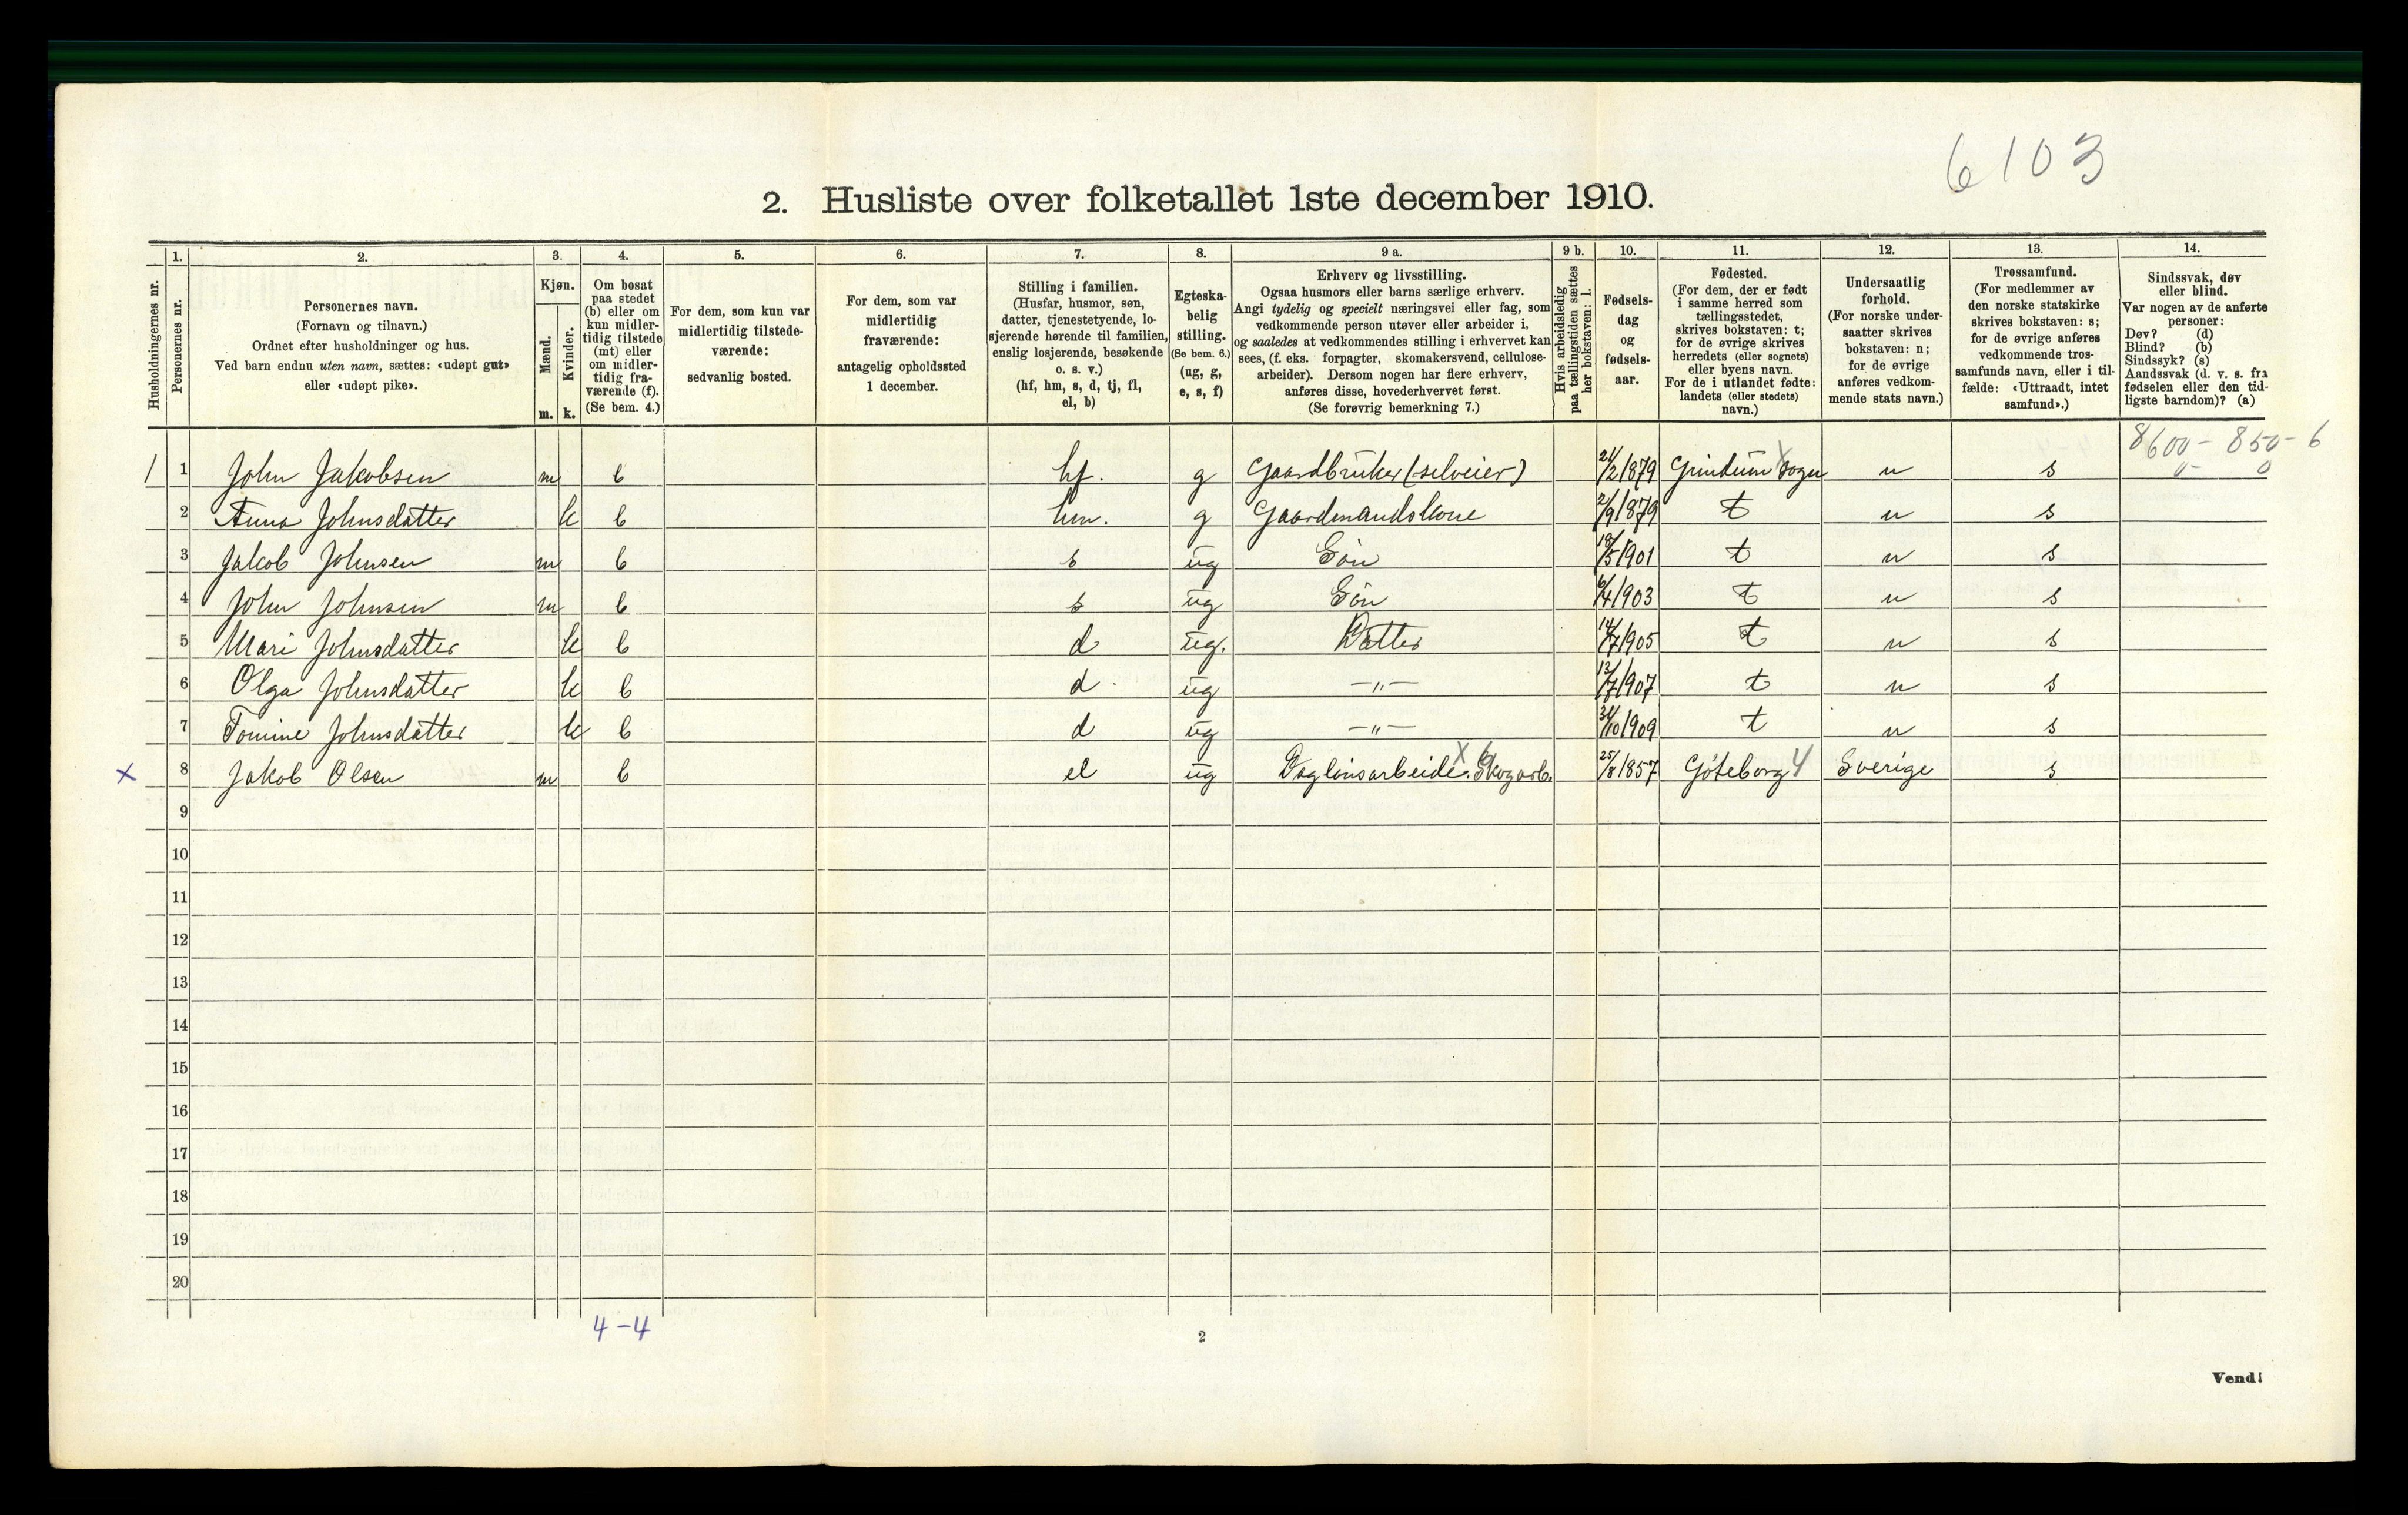 6103
2. Husliste over folketallet 1ste december 1910.
Husholdningernes nr.
1.
Personernes nr.
2.
Personernes navn.
(Fornavn og tilnavn.)
Ordnet efter husholdninger og hus.
Ved barn endnu uten navn, sættes: «udøpt gut»
eller «udøpt pike».
3.
Kjøn.
Mænd.
m.
Kvinder.
k.
4.
Om bosat
paa stedet
(b) eller om
kun midler-
tidig tilstede
(mt) eller
om midler-
tidig fra-
værende (f).
(Se bem. 4.)
5.
For dem, som kun var
midlertidig tilstede-
værende:
sedvanlig bosted.
6.
For dem, som var
midlertidig
fraværende:
antagelig opholdssted
1 december.
7.
Stilling i familien.
(Husfar, husmor, søn,
datter, tjenestetyende, lo-
sjerende hørende til familien,
enslig losjerende, besøkende
o. s. v.)
(hf, hm, s, d, tj, fl,
el, b)
8.
Egteska-
belig
stilling.
(Se bem. 6.)
(ug, g,
e, s, f)
9 a.
Erhverv og livsstilling.
Ogsaa husmors eller barns særlige erhverv.
Angi tydelig og specielt næringsvei eller fag, som
vedkommende person utøver eller arbeider i,
og saaledes at vedkommendes stilling i erhvervet kan
sees, (f. eks. forpagter, skomakersvend, cellulose-
arbeider). Dersom nogen har flere erhverv,
anføres disse, hovederhvervet først.
(Se forøvrig bemerkning 7.)
9 b.
Hvis arbeidsledig
paa tællingstiden sættes
her bokstaven: l.
10.
Fødsels-
dag
og
fødsels-
aar.
11.
Fødested.
(For dem, der er født
i samme herred som
tællingsstedet,
skrives bokstaven: t;
for de øvrige skrives
herredets (eller sognets)
eller byens navn.
For de i utlandet fødte:
landets (eller stedets)
navn.)
12.
Undersaatlig
forhold.
(For norske under-
saatter skrives
bokstaven: n;
for de øvrige
anføres vedkom-
mende stats navn.)
13.
Trossamfund.
(For medlemmer av
den norske statskirke
skrives bokstaven: s;
for de øvrige anføres
vedkommende tros-
samfunds navn, eller i til-
fælde: «Uttraadt, intet
samfund».)
14.
Sindssvak, døv
eller blind.
Var nogen av de anførte
personer:
Døv? (d)
Blind? (b)
Sindssyk? (s)
Aandssvak (d. v. s. fra
fødselen eller den tid-
ligste barndom)? (a)
8600 - 850 - 6
0 - 0
1 1 John Jakobsen m b hf. g Gaardbruker (selveier) 21/2 1879 Grindum X sogn n s
2 Anna Johnsdatter k b hm. g Gaardmandskone 2/9 1879 t n s
3 Jakob Johnsen m b s ug Søn 18/5 1901 t n s
4 John Johnsen m b s ug Søn 6/4 1903 t n s
5 Mari Johnsdatter k b d ug. Datter 14/7 1905 t n s
6 Olga Johnsdatter k b d ug —„— 13/7 1907 t n s
7 Tomine Johnsdatter k b d ug —„— /10 1909 t n s
X 8 Jakob Olsen m b el ug Daglønsarbeide. X Skogarb. 25/8 1857 Göteborg 4 Sverige s
9
10
11
12
13
14
15
16
17
18
19
20
4-4
2
Vend!